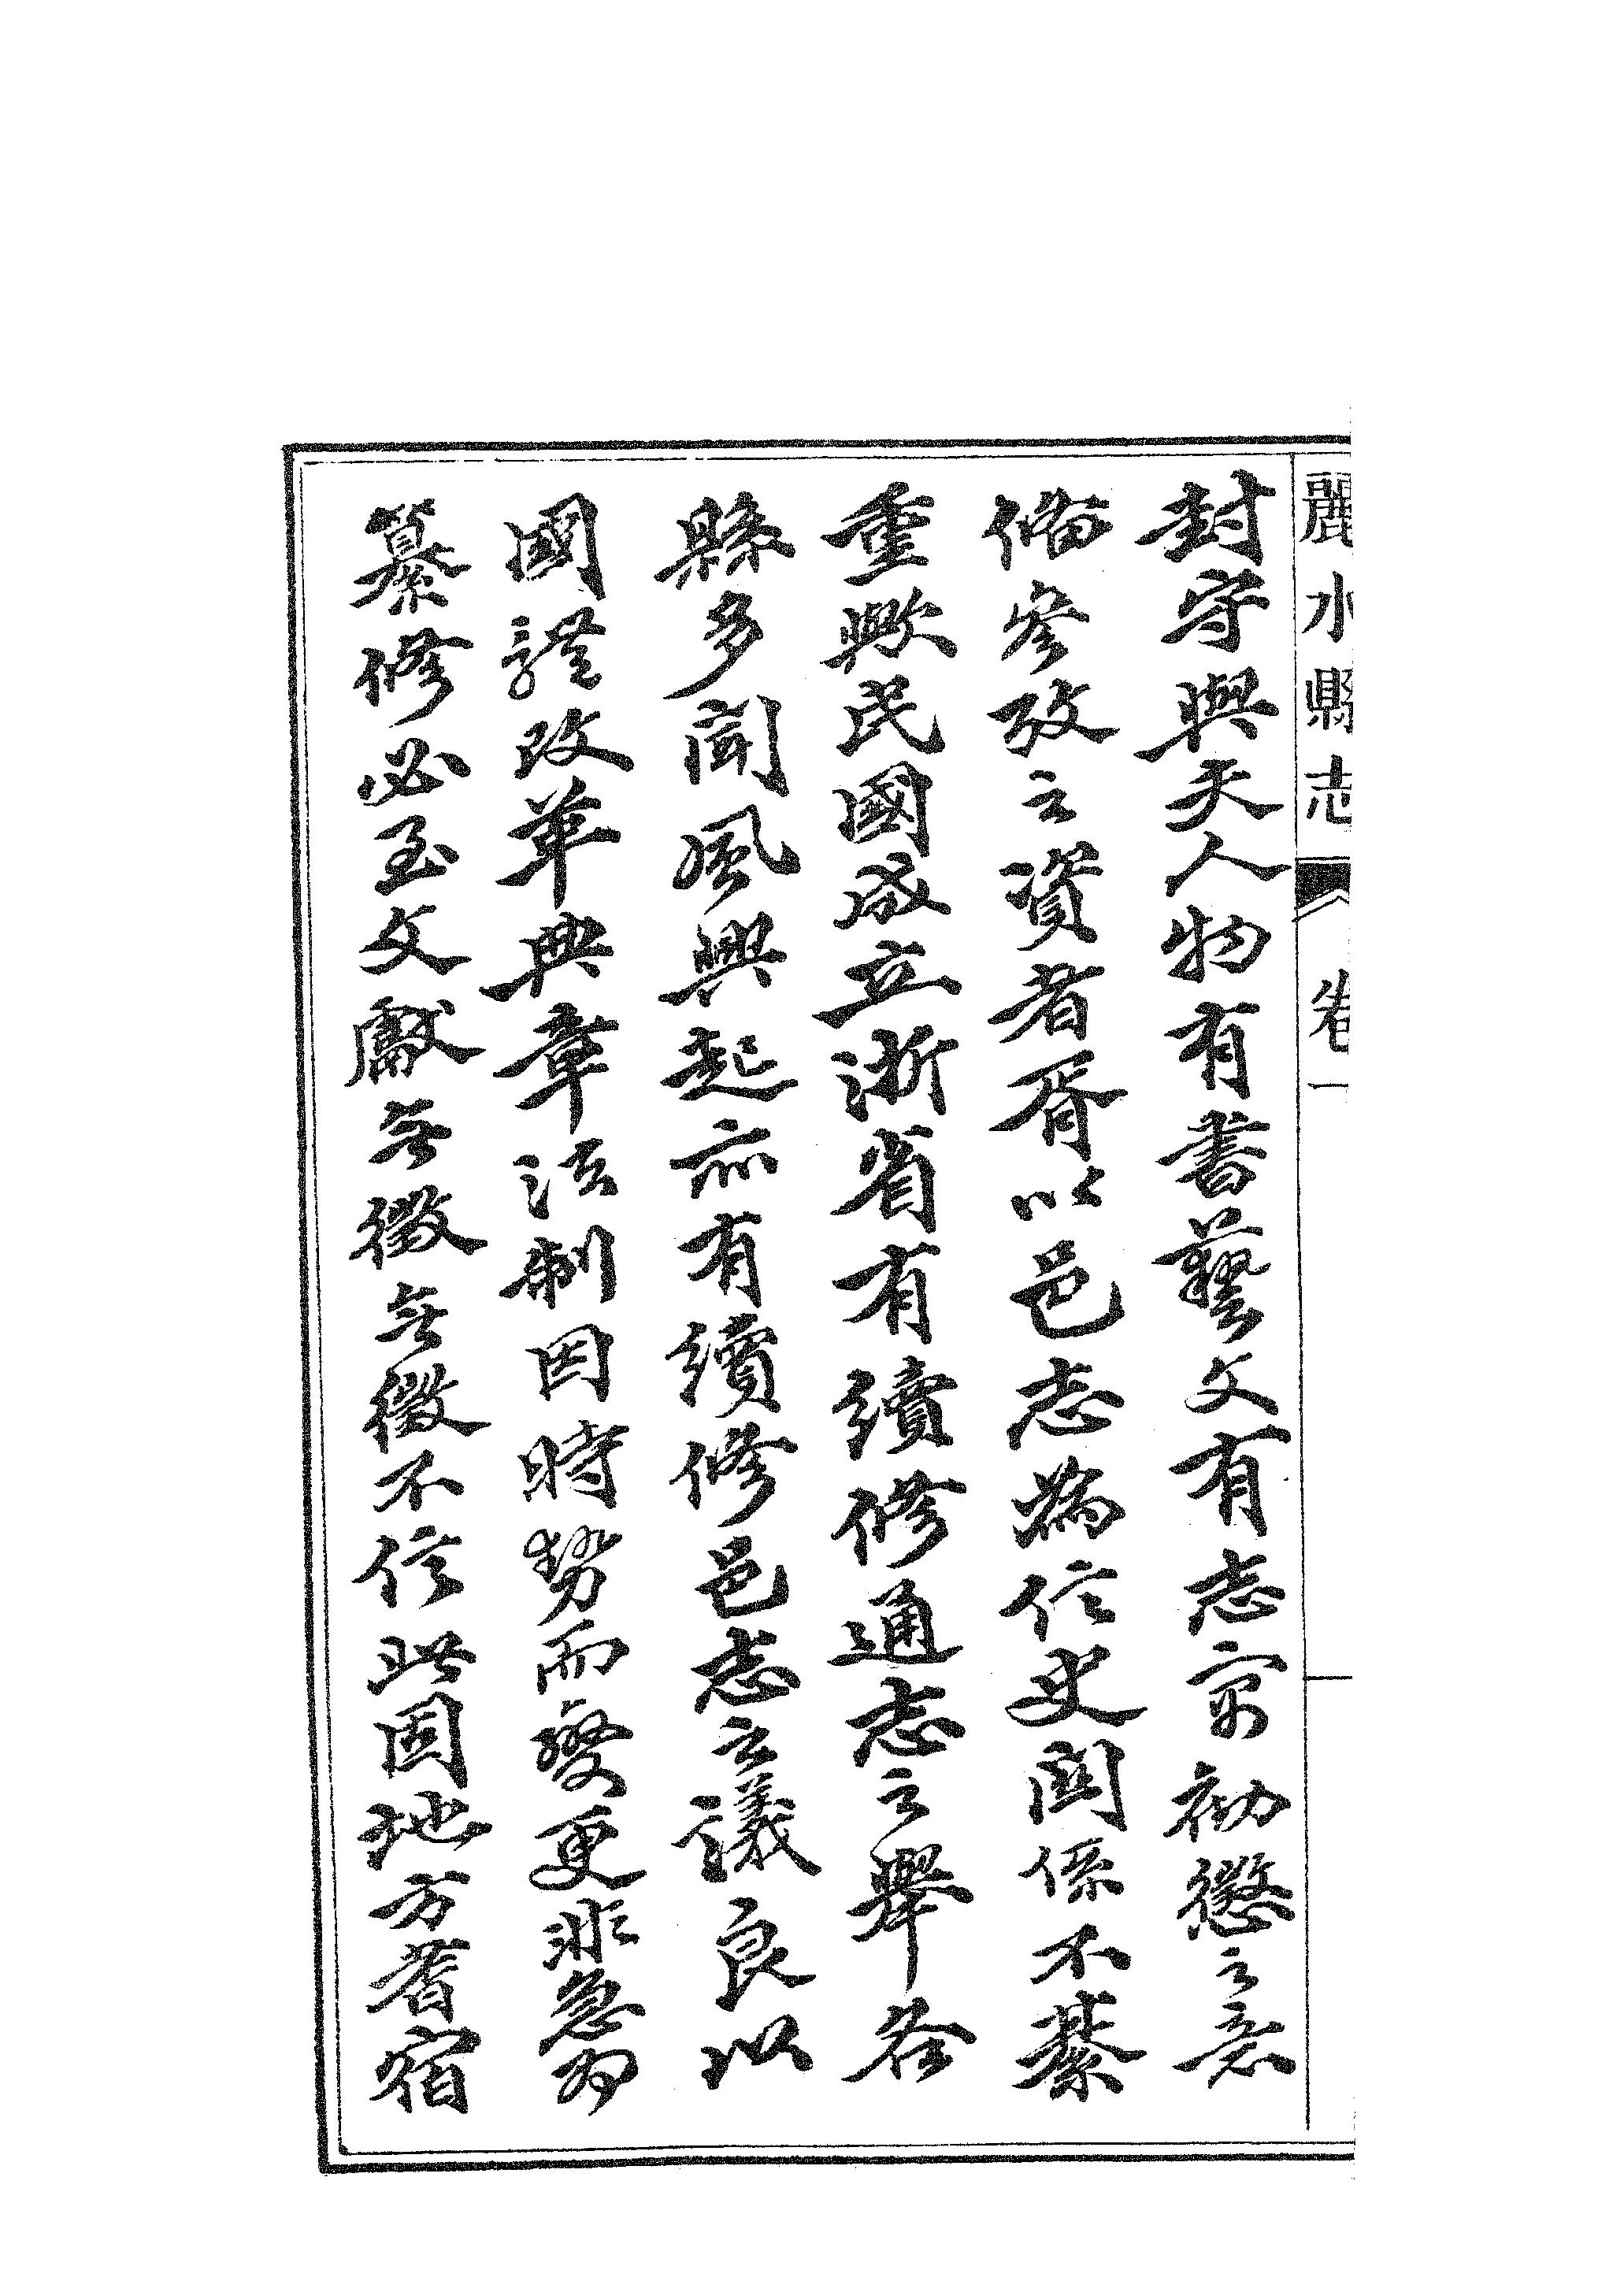 麗水縣志 卷一
封守與夫人物有書藝文有志寓勸懲之意
備參攷之資者胥以邑志為信史關係不綦
重歟民國成立浙省有續修通志之舉各
縣多聞風興起亦有續修邑志之議良以
國體改革典章法制因時勢而變更非急為
纂修必至文獻無徵無徵不信此固地方耆宿